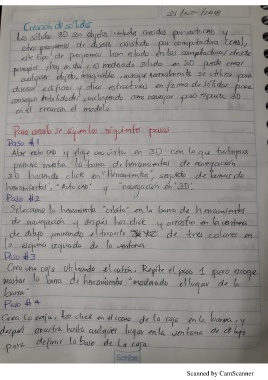 21/Nov/2018
Creación de sólidos
Los sólidos 3D son objetos virtuales creados por autocad y
otros programas de diseño asistido por computadora (CAD),
este tipo de programas han estado en las computadoras desde
hoy en día, el modelado sólido en 3D puede crear
cualquier objeto imaginable, aunque normalmente se utiliza para
diseñar edificios y otras estructuras en forma de sólidos para
conseguir incluyendo como navegar por espacio 3D
es el crear un modelo.
Para crearlo se siguen los siguientes pasos.
Paso #1
Abre autocad y elige una vista en 3D con la que trabajar
la barra de herramientas de navegación
3D haciendo click en "Herramientas", seguido de barras de
herramientas, "AutoCAD" y "navegación en 3D".
Paso #2
Selecciona la herramienta "orbita" en la barra de herramientas
de navegación y después haz click y arrastra en la ventana
de dibujo, mirando el tripode de tres colores en
la esquina izquierda de la ventana.
Paso #3
Crea una caja utilizando el ratón. Repite el paso 1 para escoger
mostrar la barra de herramientas "modelado" el lugar de la
barra.
Paso #4
Crea la caja, haz click en el icono de la caja en la barra, y
después arrastra hasta cualquier lugar en la ventana de dibujo
para definir la base de la caja.
Scanned by CamScanner